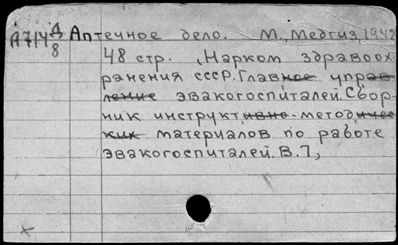 А7/4 Д/8 Аптечное дело. М., Медгиз, 1942
48 стр. (Нарком здравоох
ранения СССР. Главное управ
ление эвакогоспиталей. Сбор
ник инструктивно-методичес
ких материалов по работе
эвакогоспиталей. В.7)